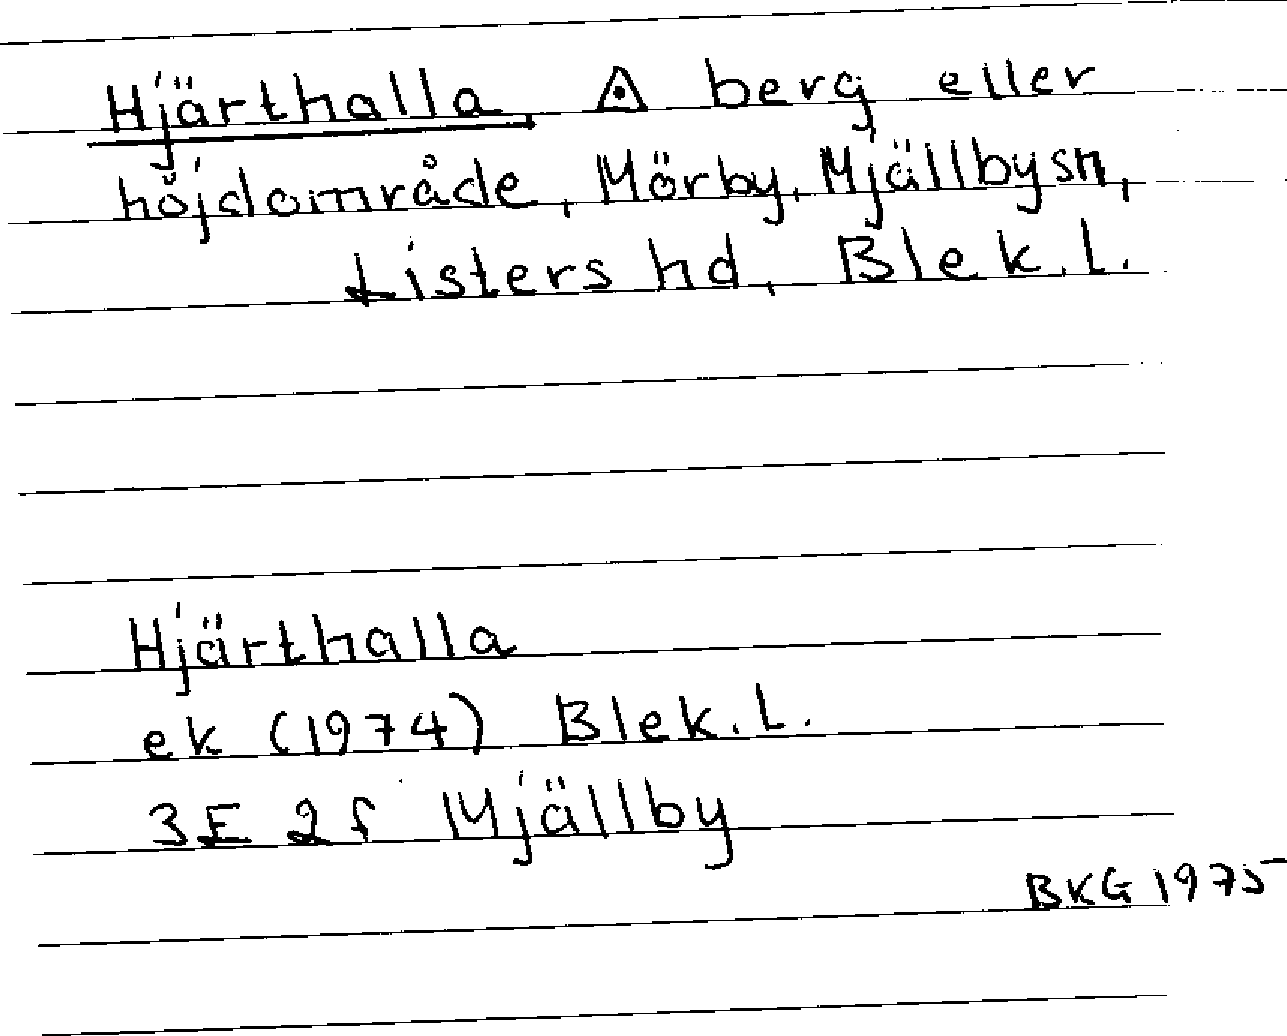 Hjärthalla ◬ berg eller
höjdområde, Mörby, Mjällby sn,
Listers hd, Blek. l.
Hjärthalla
ek (1974) Blek. l.
3E 2f Mjällby
BKG 1975